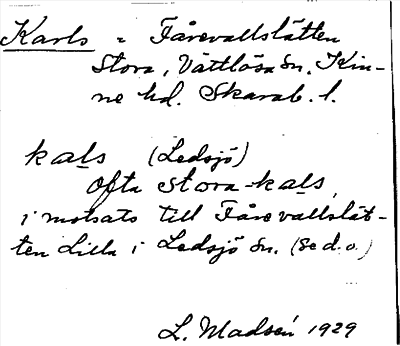 Karls = Fårevallslätten
Stora, Vättlösa Sn. Kin-
ne hd. Skarab. l.
kals (Ledsjö)
Ofta stora-kals,
i motsats till Fårevallslät-
ten Lilla i Ledsjö Sn. (se d.o.)
L. Madsén 1929